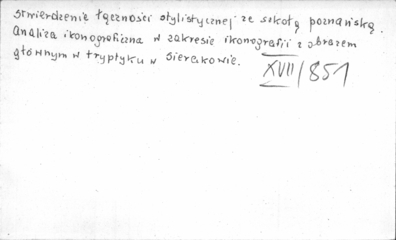 stwierdzenie łączności stylistycznej ze szkołą poznańską.
Analiza ikonograficzna w zakresie ikonografii z obrazem
głównym w tryptyku w Sierakowie.
XVII/851